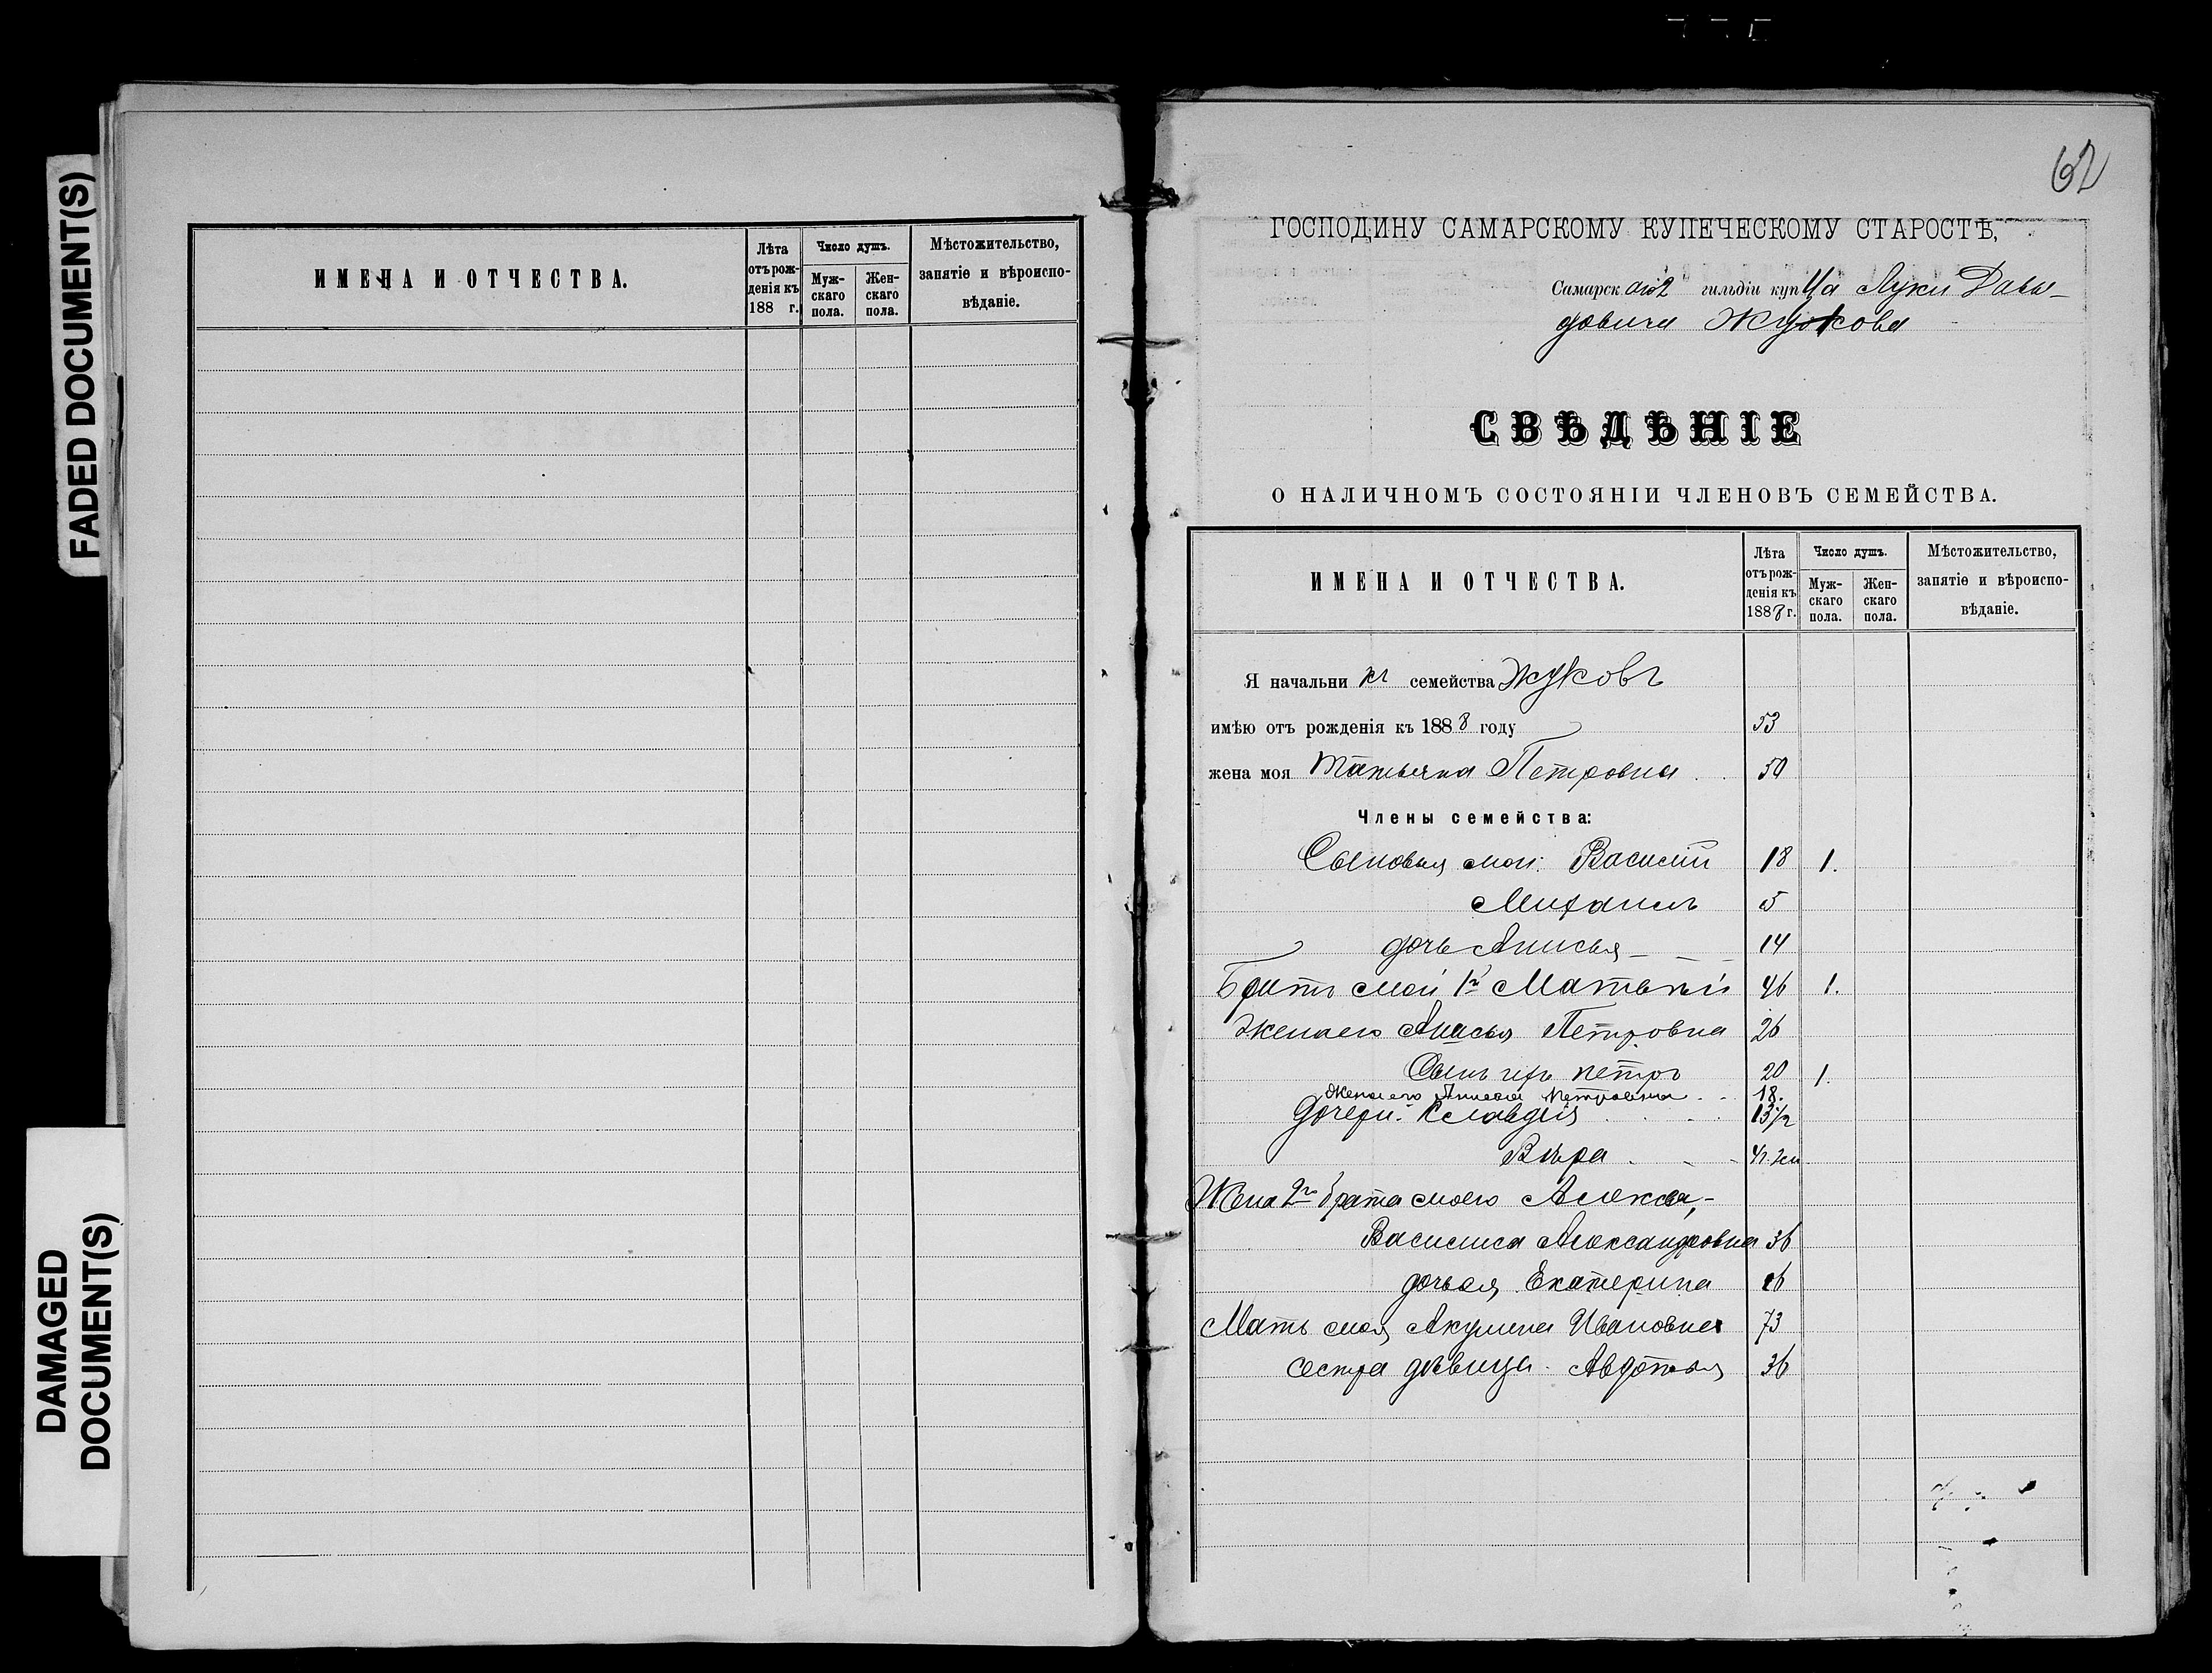 FADED DOCUMENT(S)
DAMAGED
DOCUMENT(S)
ИМЕНА И ОТЧЕСТВА.
Лѣта
отърож-
денія къ
188 г.
Число душъ.
Муж-
скаго
пола.
Жен-
скаго
пола.
Мѣстожительство,
занятіе и вѣроиспо-
вѣданіе.
62
ГОСПОДИНУ САМАРСКОМУ КУПЕЧЕСКОМУ СТАРОСТѢ,
Самарскаго 2 гильдіи купца Луки Давы-
довича Жукова
СВѢДѢНІЕ
О НАЛИЧНОМЪ СОСТОЯНІИ ЧЛЕНОВЪ СЕМЕЙСТВА.
ИМЕНА И ОТЧЕСТВА.
Лѣта
отърож-
денія къ
1888 г.
Число душъ.
Муж-
скаго
пола.
Жен-
скаго
пола.
Мѣстожительство,
занятіе и вѣроиспо-
вѣданіе.
Я начальникъ семейства Жуковъ
имѣю отъ рожденія къ 1888 году 53
жена моя Татьяна Петровна 50
Члены семейства:
Сыновья мои: Василій 18 1.
Михаилъ 5
дочь Анисья 14
Братъ мой 1й Матвѣй 46 1.
Жена его Анисья Петровна 26
Сынъ ихъ Петръ 20 1.
Жена его Петровна 18.
Дочери: Клавдія 13 1/2
Вѣра 4 г. 2 м
Жена 2го брата моего Алексея,-
Василиса Александровна 36
дочь ея Екатерина 16
Мать моя Акулина Ивановна 73
сестра дѣвица Авдотья 36